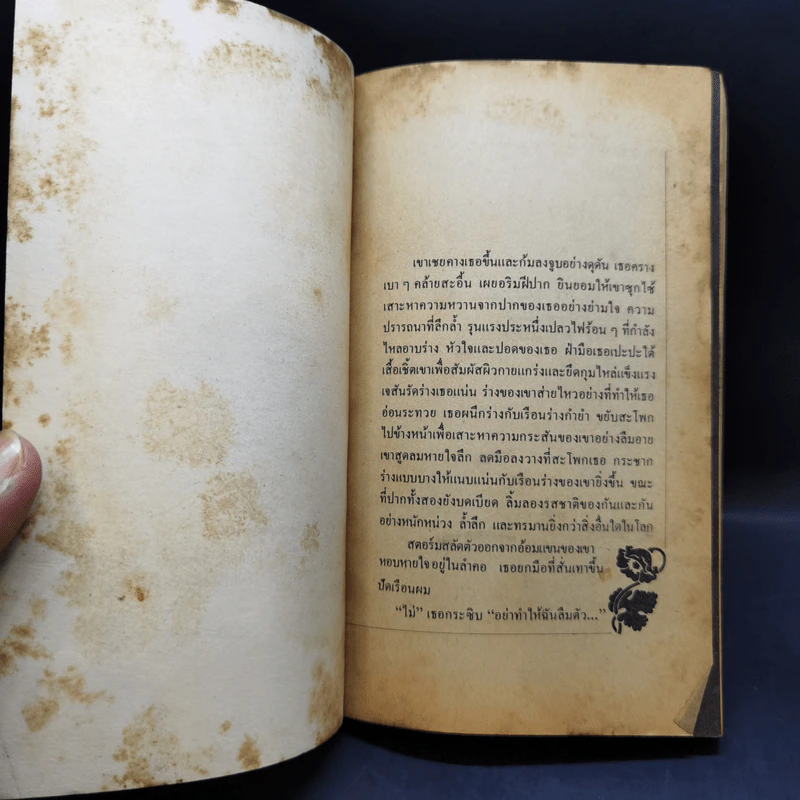 เขาเชยคางเธอขึ้นและก้มลงจูบอย่างดุดัน เธอคราง
เบา ๆ คล้ายสะอื้น เผยอริมฝีปาก ยินยอมให้เขาซุกไซ้
เสาะหาความหวานจากปากของเธออย่างย่ามใจ ความ
ปรารถนาที่ลึกล้ำ รุนแรงประหนึ่งเปลวไฟร้อน ๆ ที่กำลัง
ไหลอาบร่าง หัวใจและปอดของเธอ ฝ่ามือเธอเปะปะใต้
เสื้อเชิ้ตเขาเพื่อสัมผัสผิวกายแกร่งและยึดกุมไหล่แข็งแรง
เจสันรัดร่างเธอแน่น ร่างของเขาส่ายไหวอย่างที่ทำให้เธอ
อ่อนระทวย เธอผนึกร่างกับเรือนร่างกำยำ ขยับสะโพก
ไปข้างหน้าเพื่อเสาะหาความกระสันของเขาอย่างลืมอาย
เขาสูดลมหายใจลึก ลดมือลงวางที่สะโพกเธอ กระชาก
ร่างแบบบางให้แนบแน่นกับเรือนร่างของเขายิ่งขึ้น ขณะ
ที่ปากทั้งสองยังบดเบียด ลิ้มลองรสชาติของกันและกัน
อย่างหนักหน่วง ล้ำลึก และทรมานยิ่งกว่าสิ่งอื่นใดในโลก
สตอร์มสลัดตัวออกจากอ้อมแขนของเขา
หอบหายใจอยู่ในลำคอ เธอยกมือที่สั่นเทาขึ้น
ปัดเรือนผม
“ไม่” เธอกระซิบ “อย่าทำให้ฉันลืมตัว...”